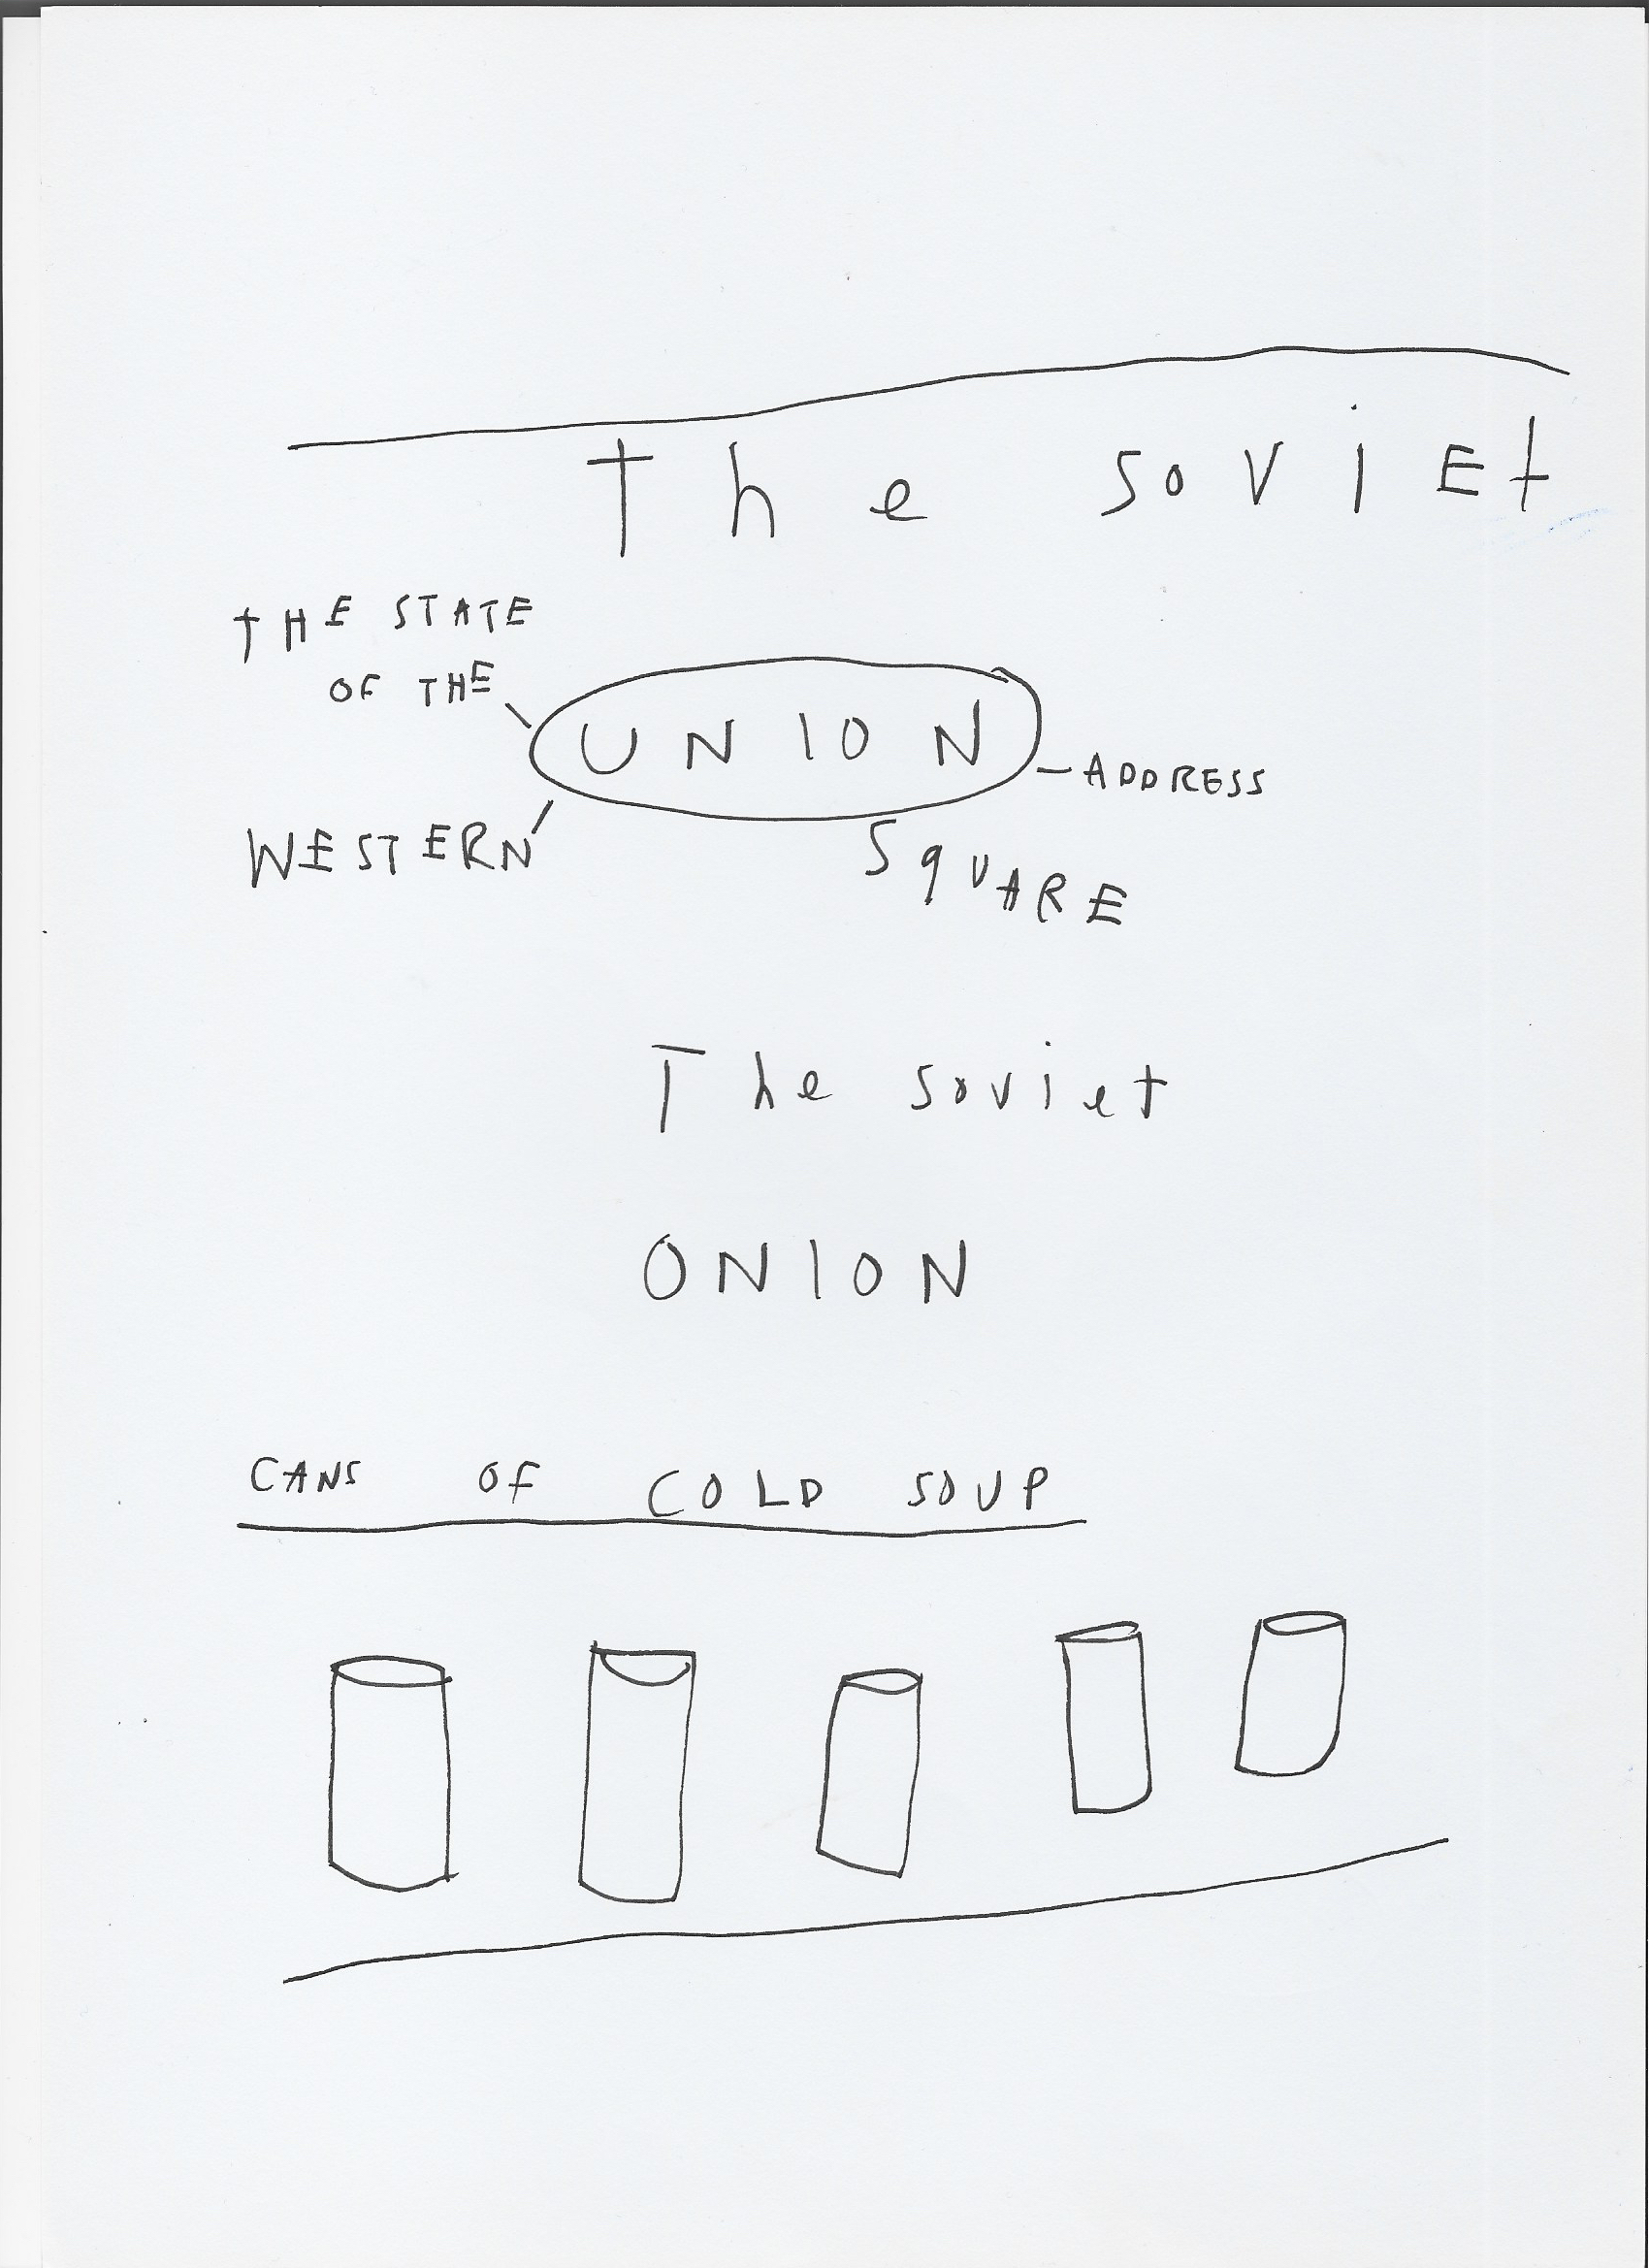 The soviEt
tHE STATE
OF THE
UNION
ADDRESS
WESTERN
SqUARE
The soviet
ONION
CANS OF COLD SOUP